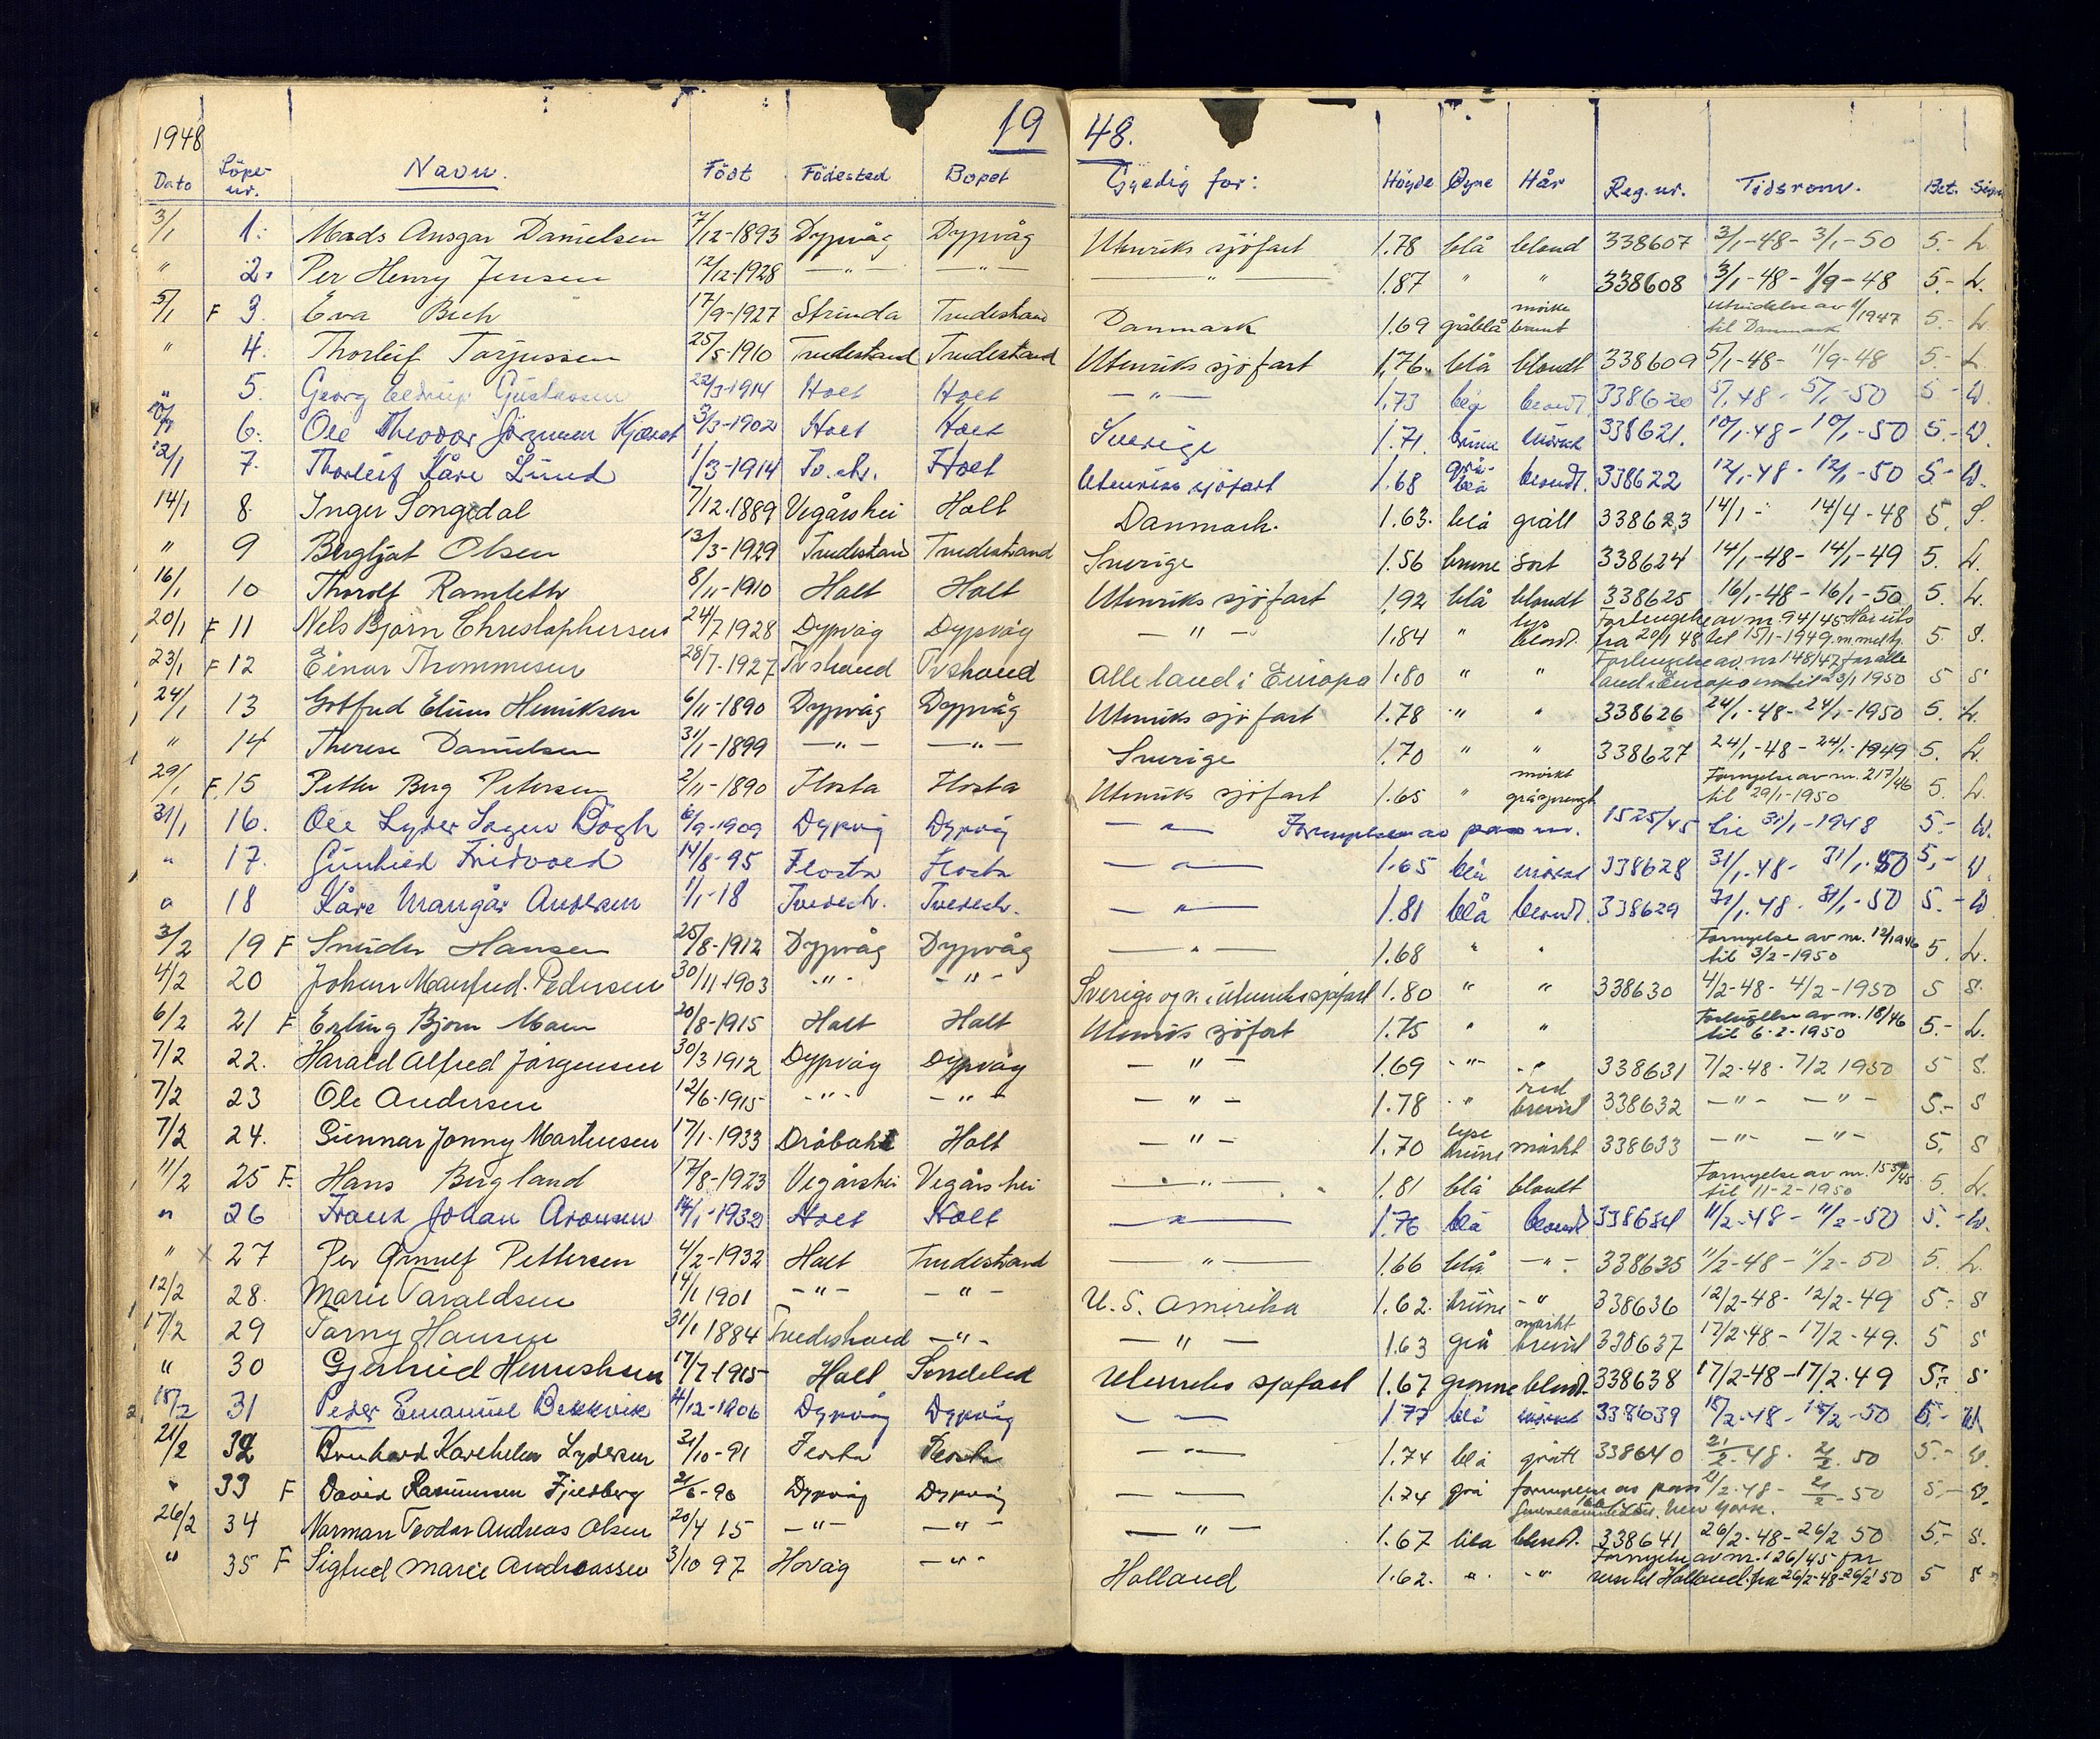 1948 19 48.
Dato Löpe-nr. Navn. Födt Födested Bopel Gyldig for: Höyde Öyne Hår Reg. nr. Tidsrom. Bet. Sign
3/1 1. Mads Ansgar Danielsen 7/12-1893 Dypvåg Dypvåg Utenriks sjöfart 1.78 blå blond 338607 3/1-48- 3/1-50 5.- L.
" 2. Per Henry Jensen 12/12-1928 — " — — " — — " — 1.87 " " 338608 3/1-48- 1/9-48 5.- L.
5/1 F 3. Eva Buch 17/9-1927 Strinda Tvedestrand Danmark 1.69 gråblå mörke brunt Utvidelse av /1947 til Danmark 5.- L.
" 4. Thorleif Torjussen 25/5-1910 Tvedestrand Tvedestrand Utenriks sjöfart 1.76. blå blondt 338609 5/1-48- 11/9-48 5.- L.
" 5. Georg Gustavsen 22/3-1914 Holt Holt — " — 1.73 blå blondt. 338620 5/1-48- 5/1-50 5.- W.
10/1 6. Ole Theodor Jörgensen 3/3-1902 Holt Holt Sverige 1.71. brune mörkt 338621. 10/1-48- 10/1-50 5.- W.
12/1 7. Thorleif Kåre Lund 1/3-1914 Tv.str. Holt Utenriks sjöfart 1.68 grå-blå blondt. 338622 12/1-48- 12/1-50 5.- W.
14/1 8. Inger Songedal 7/12.1889 Vegårshei Holt Danmark. 1.63. blå grått 338623 14/1- 14/4-48 5. S.
" 9 Bergljot Olsen 13/3-1929 Tvedestrand Tvedestrand Sverige 1.56 brune sort 338624 14/1-48- 14/1-49 5. L.
16/1 10 Thorolf Ramleth 8/11-1910 Holt Holt Utenriks sjöfart 1.92 blå blondt 338625 16/1-48- 16/1-50 5. L.
20/1 F 11 Nils Björn Christophersen 24/7 1928 Dypvåg Dypvåg — " — 1.84 " lys blond. Forlengelse av nr. 94/45 fra 20/1 48 til 15/1-1949. 5. S.
23/1 F 12 Einar Thommesen 28/7-1927 Tvstrand Tvstrand Alle land i Europa 1.80 " " Forlengelse av nr 148/47 for alle land i Europa til 23/1 1950 5 S
24/1 13 Gotfred Elius Henriksen 6/11-1890 Dypvåg Dypvåg Utenriks sjöfart 1.78 " " 338626 24/1-48- 24/1-1950 5. L.
" 14 Therese Danielsen 31/1-1899 — " — — " — Sverige 1.70 " " 338627 24/1-48- 24/1-1949 5. L.
29/1 F. 15 Petter Berg Petersen 2/11-1890 Flosta Flosta Utenriks sjöfart 1.65 " mörkt gråsprengt Fornyelse av nr. 217/46 til 29/1-1950 5. L.
31/1 16. Ole Lyder Bögh 6/9-1909 Dypvåg Dypvåg — " — Fornyelse av pass nr. 1525/45 til 31/1-1948 5.- W.
" 17. Gunhild Fridvold 14/8-95 Flosta Flosta — " — 1.65 blå mörkt 338628 31/1-48- 31/1-50 5,- W.
" 18 Kåre Mangår Andersen 1/1-18 Tvedestr. Tvedestr. — " — 1.81 blå blondt. 338629 31/1-48. 31/1-50 5.- W
3/2 19 F Hansen 25/8-1912 Dypvåg Dypvåg — " — 1.68 " " Fornyelse av nr. til 3/2-1950 5. L.
4/2 20 Johan Manfred. Pedersen 30/11-1903 - " - - " - Sverige og 1.80 " " 338630 4/2-48- 4/2-1950 5 S.
6/2 21 F Erling Bjorn Moen 20/8-1915 Holt Holt Utenriks sjöfart 1.75 " " Forlengelse av nr. 18/46 til 6-2-1950 5.- L.
7/2 22. Harald Alfred Jörgensen 30/3 1912 Dypvåg Dypvåg — " — 1.69 - " - - " 338631 7/2-48- 7/2 1950 5 S.
7/2 23 Ole Andersen 12/6-1915 - " - - " - — " — 1.78 " rød brunt 338632 — " — — " — 5.- S
7/2 24. Gunnar Jonny Martinsen 17/1-1933 Dröbakk Holt — " — 1.70 lyse brune mörkt 338633 — " — — " — 5. S
11/2 25 F. Hans Bergland 17/8-1923 Vegårshei Vegårshei — " — 1.81 blå blondt Fornyelse av nr. til 11-2-1950 5. L.
" 26 Frank Johan Aronsen 14/1-1932 Holt Holt — " — 1.76 blå blondt 338634 11/2-48- 11/2-50 5.- W.
" x 27 Per Arnulf Pettersen 4/2-1932 Holt Tvedestrand — " — 1.66 blå — " — 338635 11/2-48- 11/2-50 5. L.
12/2 28. Marie Taraldsen 14/1 1901 — " — — " — U.S. Amerika 1.62. brune - " 338636 12/2-48- 12/2-49 5- S
17/2 29 Torny Hansen 31/1 1884 Tvedestrand — " — — " — 1.63 grå mörkt brunt 338637 17/2-48- 17/2-49. 5 S
" 30 Gjertrud Henrichsen 17/7-1915- Holt Söndeled Utenriks sjöfart 1.67 grönne blond- 338638 17/2-48-17/2-49 5,- S
18/2 31 Peder Emanuel Bekkvik 14/12-1906 Dypvåg Dypvåg — " — 1.77 blå mörkt 338639 18/2-48- 18/2-50 5.- W
21/2 32 Bernhard Lydersen 31/10-91 Flosta Flosta — " — 1.74 blå grått 338640 21/2-48. 21/2.50 5.- W.
" 33 F David Rasmussen Fjeldberg 21/6-90 Dypvåg Dypvåg — " — 1.74 grå fornyelse av pass 21/2-48- 21/2-50 New York. 5.- W.
26/2 34 Norman Teodor Andreas Olsen 20/4 15 — " — — " — — " — 1.67 blå blond. 338641 26/2-48- 26/2.50 5,- S.
" 35 F Sigfred Marie Andreassen 3/10 97 Hövåg — " - Holland 1.62. " - " Fornyelse av nr. 126/45 for reise til Holland. fra 26/2-48-26/2 50 5 S